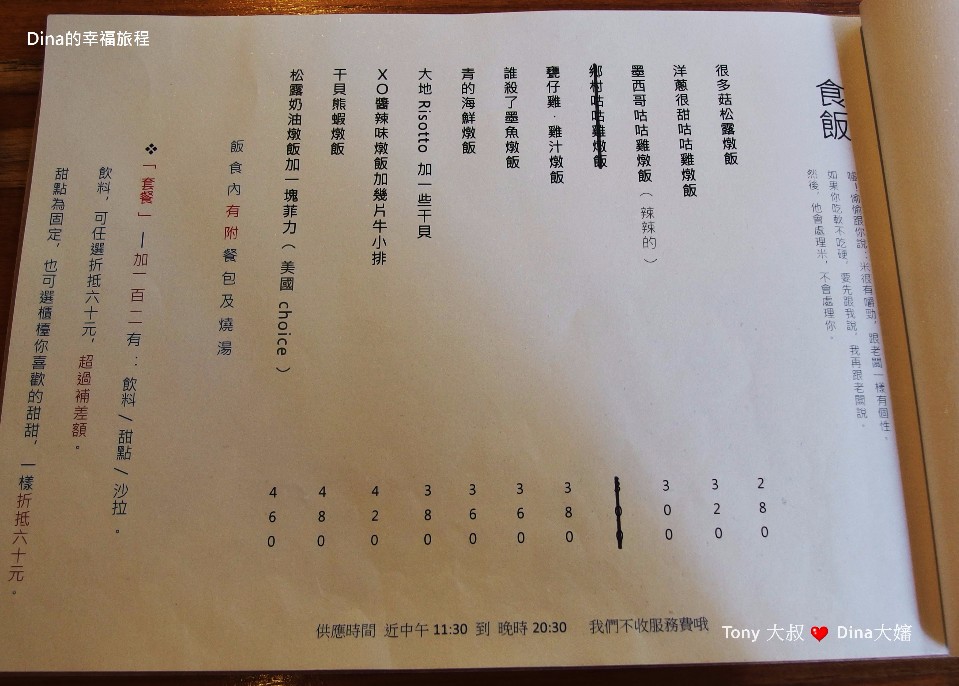 Dina的幸福旅程
食飯
喔！偷偷跟你說：米很有嚼勁，跟老闆一樣有個性。
如果你吃軟不吃硬，要先跟我說，我再跟老闆說。
然後，他會處理米，不會處理你。
很多菇松露燉飯 280
洋蔥很甜咕咕雞燉飯 320
墨西哥咕咕雞燉飯（辣辣的） 300
鄉村咕咕雞燉飯
甕仔雞．雞汁燉飯 380
誰殺了墨魚燉飯 360
青的海鮮燉飯 360
大地 Risotto 加一些干貝 380
XO醬辣味燉飯加幾片牛小排 420
干貝熊蝦燉飯 480
松露奶油燉飯加一塊菲力（美國 choice） 460
飯食內有附餐包及燒湯
❖「套餐」—加一百二有：飲料/甜點/沙拉。
飲料，可任選折抵六十元，超過補差額。
甜點為固定，也可選櫃檯你喜歡的甜甜，一樣折抵六十元。
供應時間 近中午 11:30 到 晚時 20:30 我們不收服務費哦
Tony 大叔 ❤ Dina大嬸